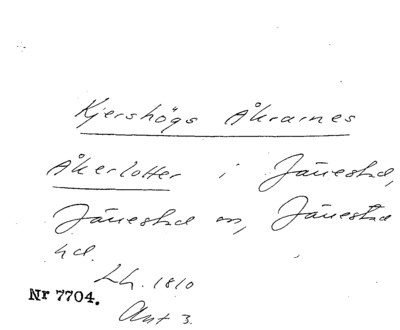 Kjershögs Åkrarnes
Åkerlotter i Jänestad,
Jänestad sn, Jänestad
hd.
Lh. 1810
Nr 7704.
Akt 3.